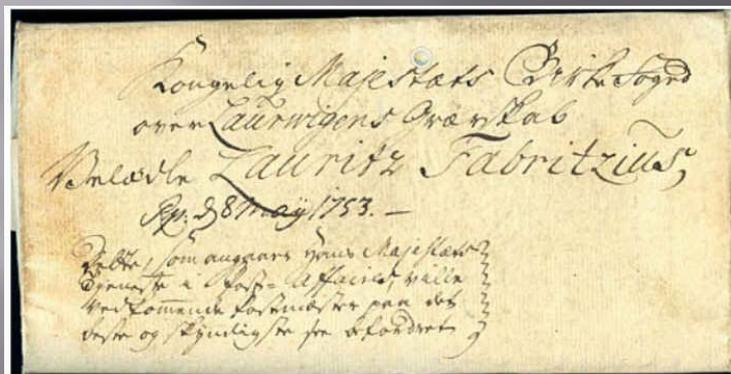 Kongelig Majestæts Birke Foged
over Laurwigens Grævskab
Velædle Lauritz Fabritzius,
d 8 May 1753. —
Dette, som angaaer Hans Majestæts
Tieneste i Post-Affaires, vilde
Vedkommende Postmæster paa det
beste og skyndligste see befordret